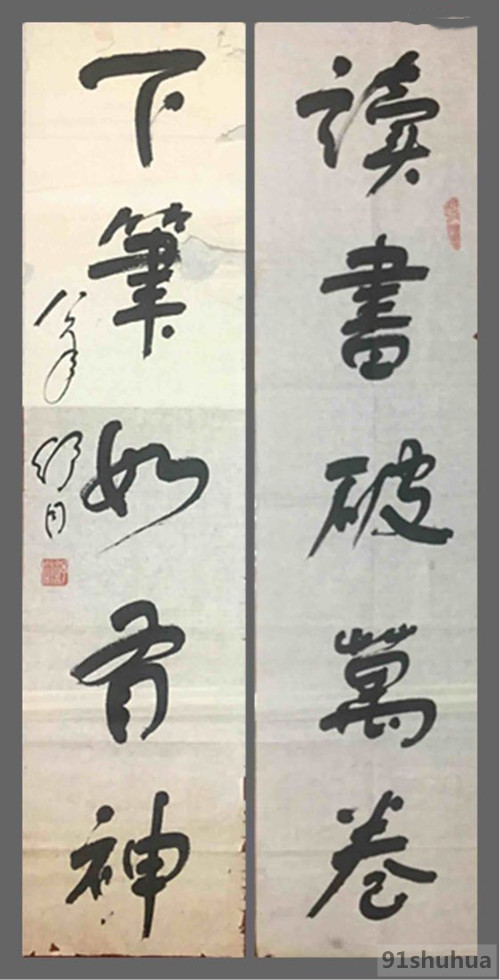 讀書破萬卷
下筆如有神
舒同
91shuhua